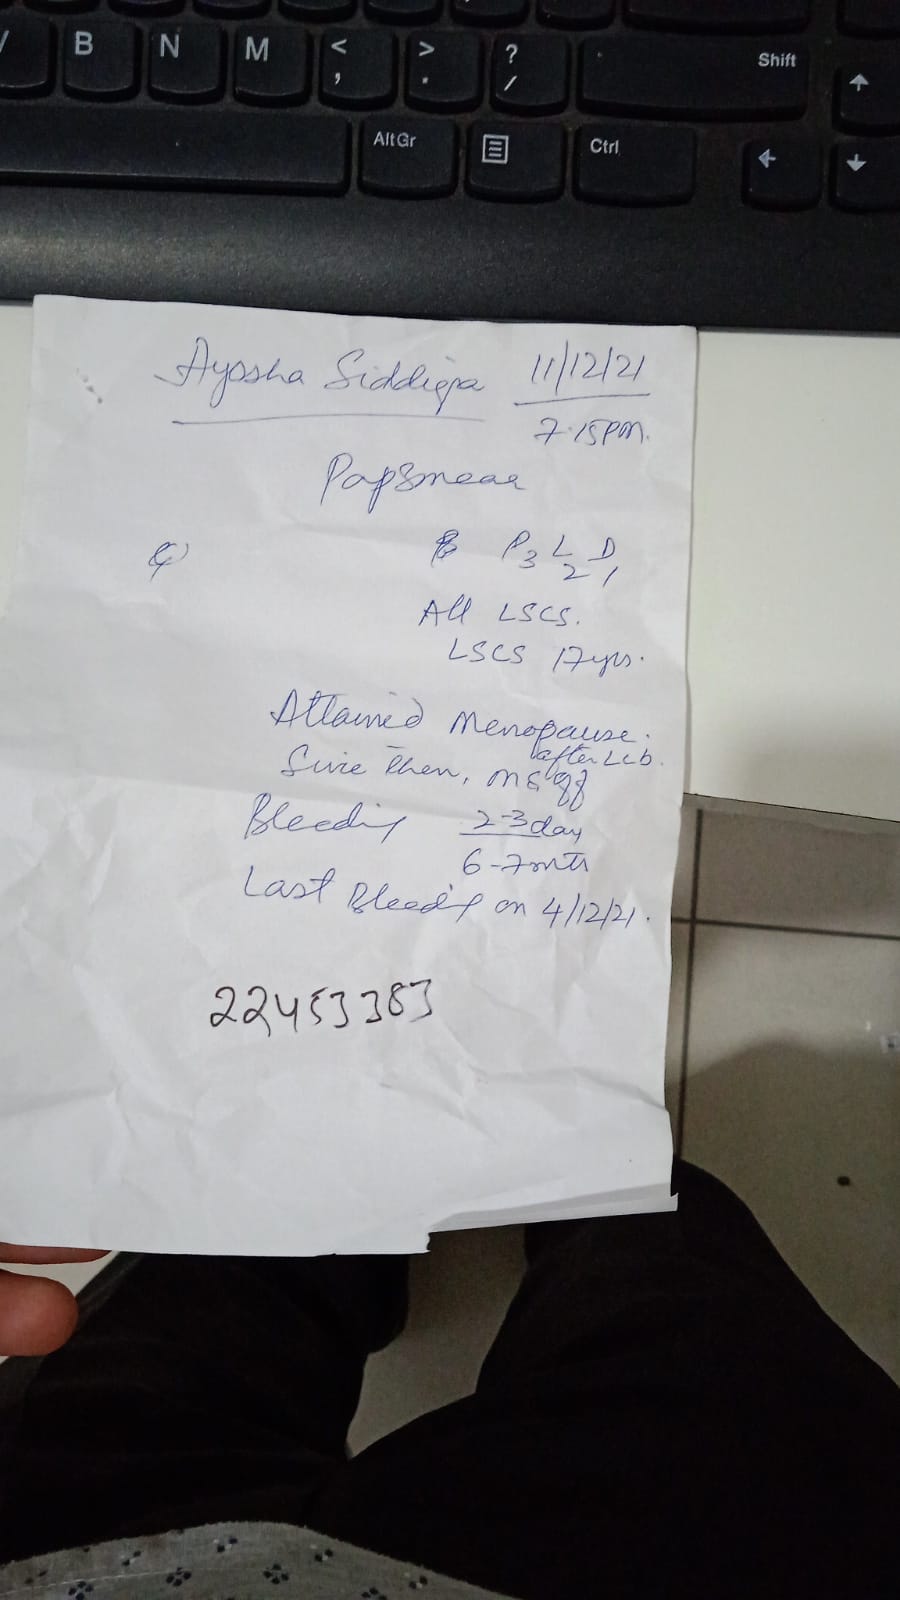 B N M < , > . ? / Shift
Alt Gr Ctrl
Ayosha Siddiqa 11/12/21
7.15PM.
Papsmear
P3 L2 D1
All LSCS.
LSCS 17yrs.
Attained Menopause.
after Lcb.
Since Then,
Bleeding 2-3day
6-7mts
Last Bleed'g on 4/12/21.
22453383